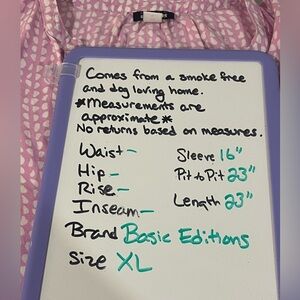 Comes from a smoke free
and dog loving home.
*Measurements are
approximate*
No returns based on measures.
Waist -
Hip -
Rise -
Inseam -
Sleeve 16"
Pit to Pit 23"
Length 23"
Brand Basic Editions
Size XL